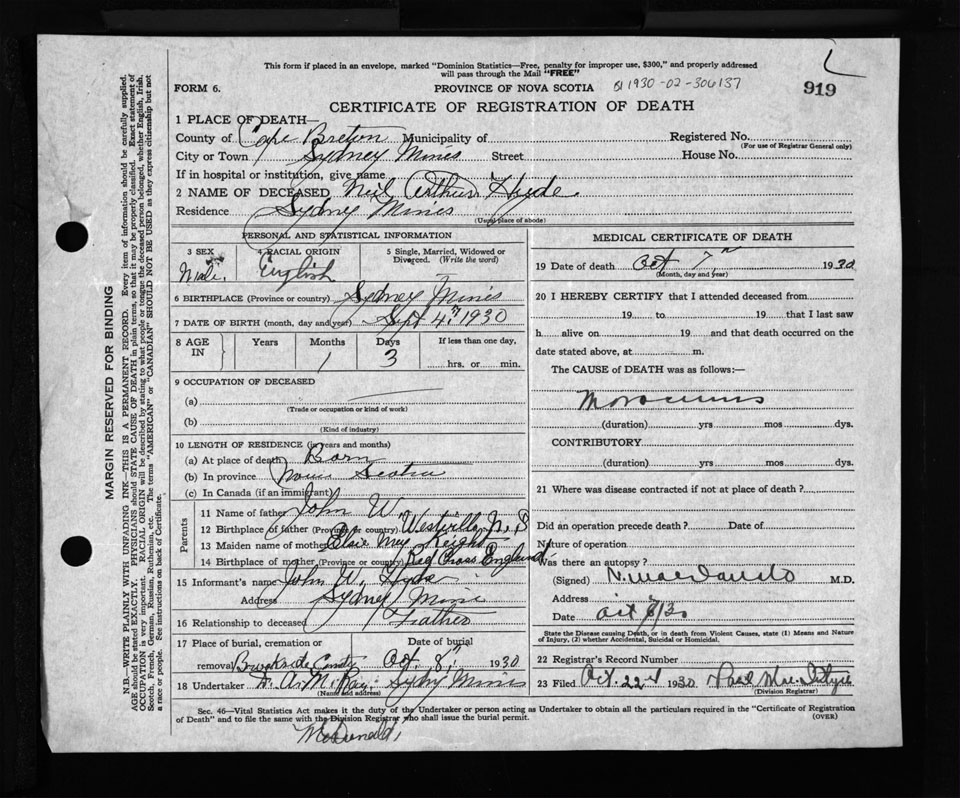 This form if placed in an envelope, marked "Dominion Statistics—Free, penalty for improper use, $300," and properly addressed
will pass through the Mail "FREE"
FORM 6.
PROVINCE OF NOVA SCOTIA
1930-02-306137
919
CERTIFICATE OF REGISTRATION OF DEATH
1 PLACE OF DEATH—
County of Cape Breton Municipality of
Registered No.
(For use of Registrar General only)
City or Town Sydney Mines Street House No.
If in hospital or institution, give name
2 NAME OF DECEASED Neil Arthur Hyde.
Residence Sydney Mines
(Usual place of abode)
PERSONAL AND STATISTICAL INFORMATION
3 SEX
Male.
4 RACIAL ORIGIN
English
5 Single, Married, Widowed or
Divorced. (Write the word)
6 BIRTHPLACE (Province or country) Sydney Mines
7 DATE OF BIRTH (month, day and year) Sept 4, 1930
8 AGE
IN
Years Months Days If less than one day,
1 3 hrs. or min.
9 OCCUPATION OF DECEASED
(a)
(Trade or occupation or kind of work)
(b)
(Kind of industry)
10 LENGTH OF RESIDENCE (in years and months)
(a) At place of death Born
(b) In province Nova Scotia
(c) In Canada (if an immigrant)
Parents
11 Name of father John W.
12 Birthplace of father (Province or country) Westville, N. S
13 Maiden name of mother Elsie May Keight
14 Birthplace of mother (Province or country) Red Cross England
15 Informant's name John W. Hyde
Address Sydney Mines
16 Relationship to deceased Father
17 Place of burial, cremation or Date of burial
removal Brookside Oct. 8, 1930
18 Undertaker Sydney Mines
(Name and address)
MEDICAL CERTIFICATE OF DEATH
19 Date of death Oct 7 1930
(Month, day and year)
20 I HEREBY CERTIFY that I attended deceased from
19 to 19 that I last saw
h alive on 19 and that death occurred on the
date stated above, at m.
The CAUSE of DEATH was as follows:—
(duration) yrs mos dys.
CONTRIBUTORY
(duration) yrs mos dys.
21 Where was disease contracted if not at place of death?
Did an operation precede death? Date of
Nature of operation
Was there an autopsy?
(Signed) N. MacDonald M.D.
Address
Date Oct 8/30
State the Disease causing Death, or in death from Violent Causes, state (1) Means and Nature
of Injury, (2) whether Accidental, Suicidal or Homicidal.
22 Registrar's Record Number
23 Filed Oct. 22 1930
(Division Registrar)
Sec. 46—Vital Statistics Act makes it the duty of the Undertaker or person acting as Undertaker to obtain all the particulars required in the "Certificate of Registration
of Death" and to file the same with the Division Registrar who shall issue the burial permit.
(OVER)
McDonald,
MARGIN RESERVED FOR BINDING
N.B.—WRITE PLAINLY WITH UNFADING INK—THIS IS A PERMANENT RECORD. Every item of information should be carefully supplied.
AGE should be stated EXACTLY. PHYSICIANS should STATE CAUSE OF DEATH in plain terms, so that it may be properly classified. Exact statement of
OCCUPATION is very important. RACIAL ORIGIN will be described by stating to what people or tongue the deceased person belonged, whether English, Irish,
Scotch, French, German, Russian, Ruthenian, etc. The terms "AMERICAN" or "CANADIAN" SHOULD NOT BE USED as they express citizenship but not
a race or people. See instructions on back of Certificate.